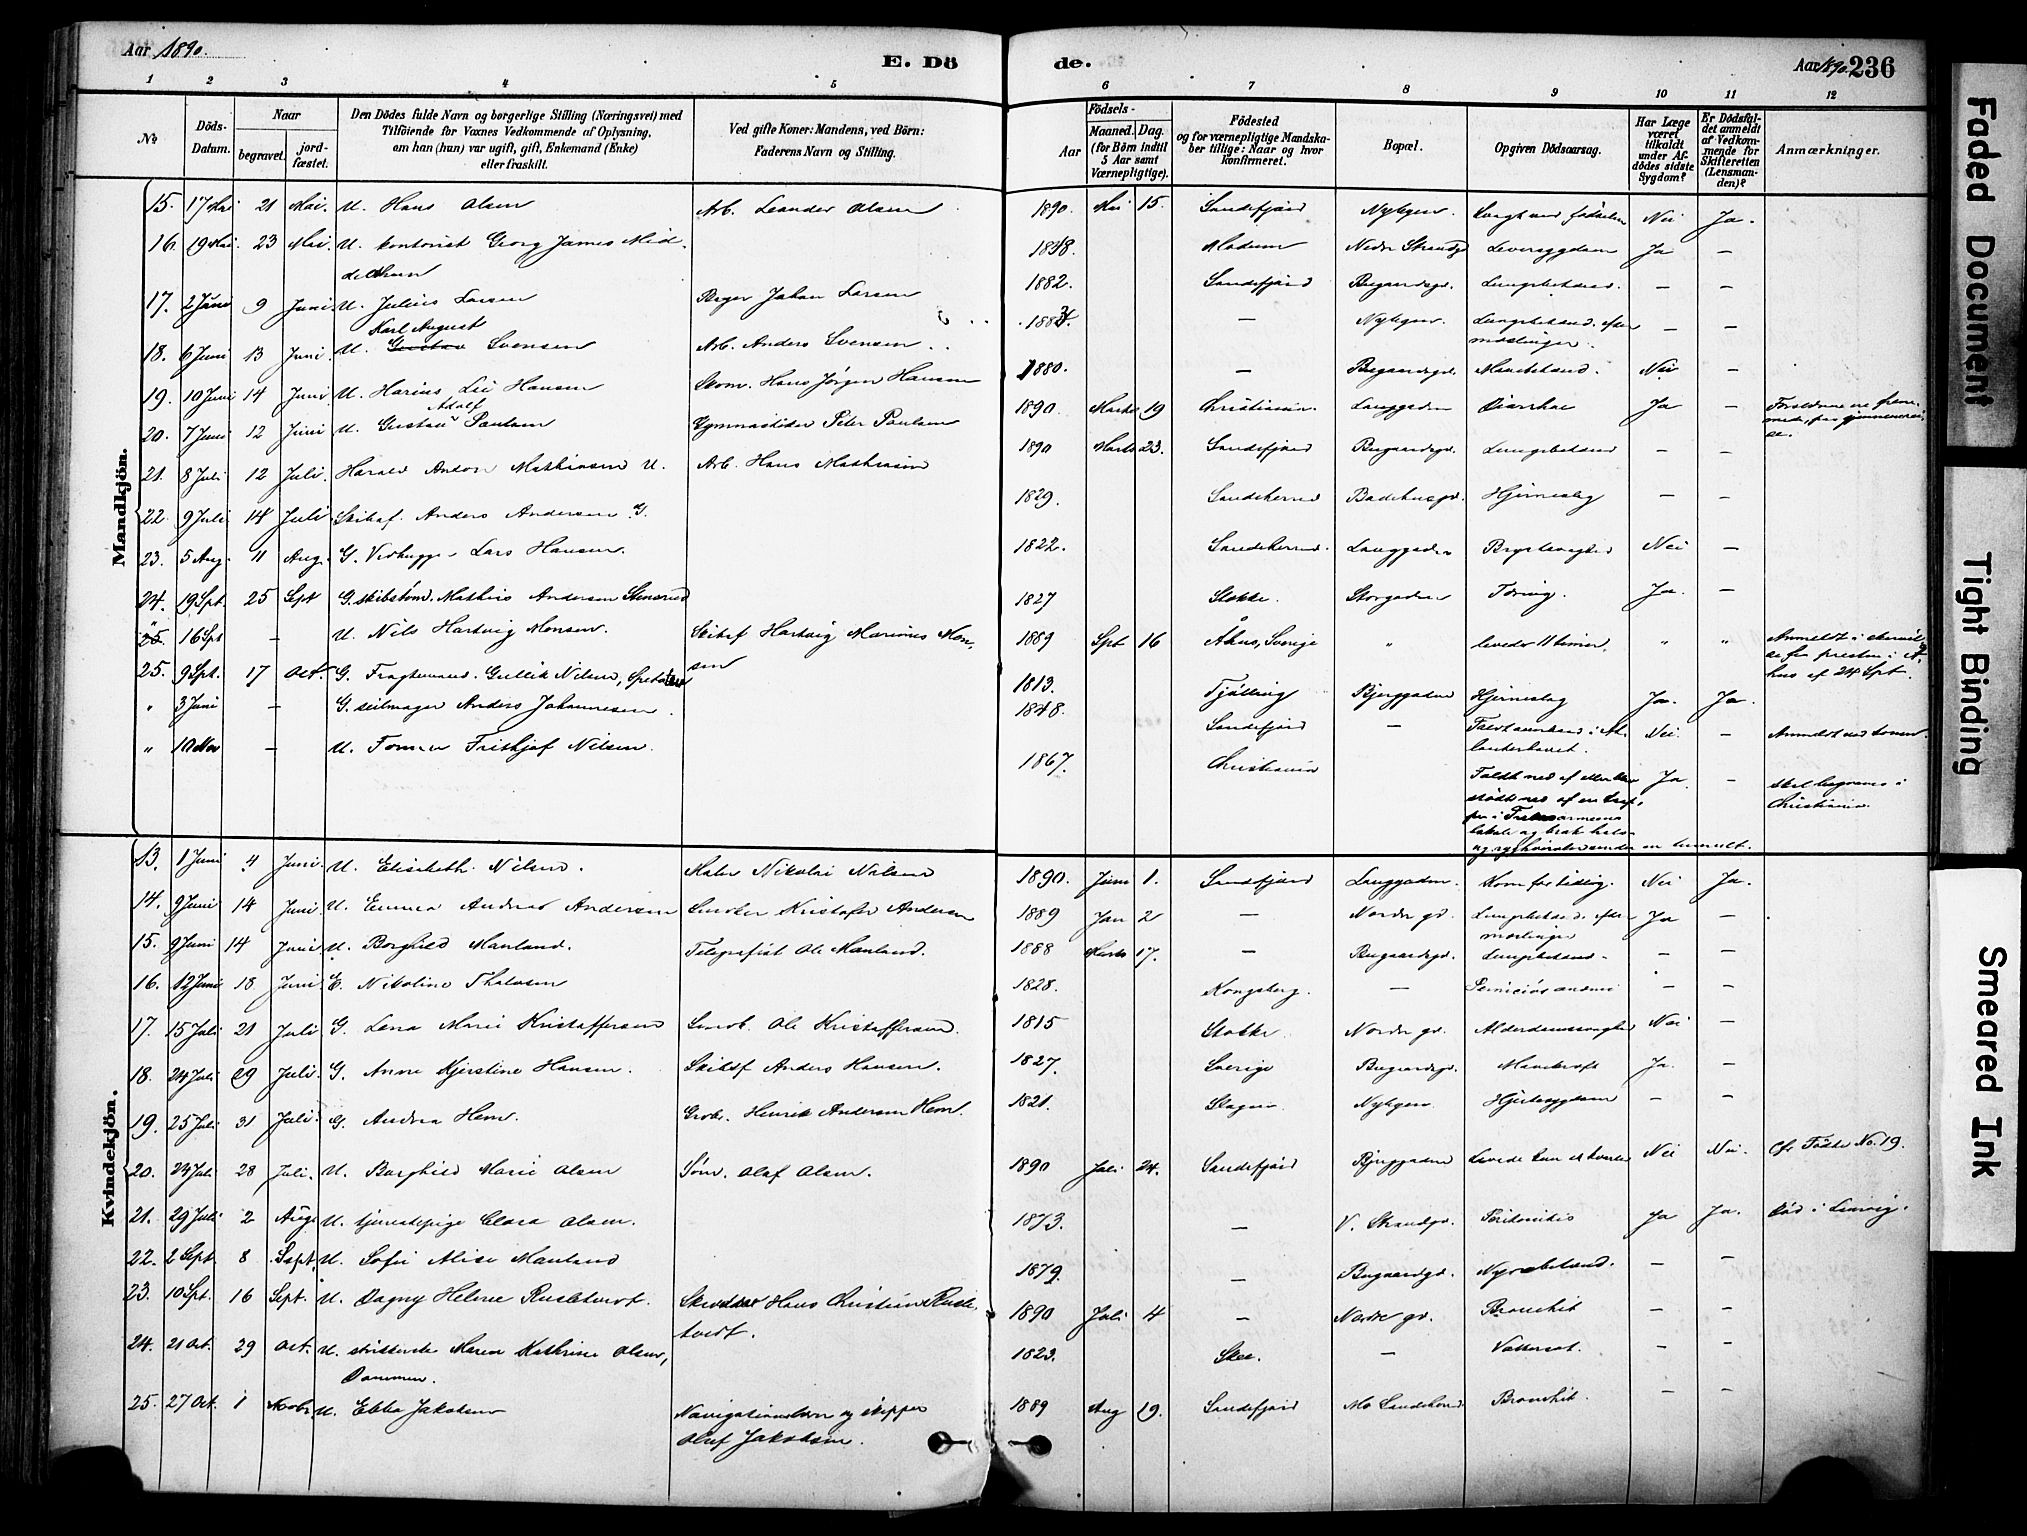 Aar 1890.
E. Dö
de.
Aar 1890. 236
1 2 3 4 5 6 7 8 9 10 11 12
№
Döds-Datum.
Naar
begravet.
jord-fæstet.
Den Dödes fulde Navn og borgerlige Stilling (Næringsvei) med
Tilföiende for Voxnes Vedkommende af Oplysning,
om han (hun) var ugift, gift, Enkemand (Enke)
eller fraskilt.
Ved gifte Koner: Mandens, ved Börn:
Faderens Navn og Stilling.
Födsels-
Aar
Maaned. Dag.
(for Börn indtil
5 Aar samt
Værnepligtige).
Födested
og for værnepligtige Mandska-
ber tillige: Naar og hvor
konfirmeret.
Bopæl.
Opgiven Dödsaarsag.
Har Læge
været
tilkaldt
under Af-
dödes sidste
Sygdom?
Er Dödsfal-
det anmeldt
af Vedkom-
mende for
Skifteretten
(Lensman-
den)?
Anmærkninger.
Mandkjön.
15. 17 Mai 21 Mai. U. Hans Olsen Arb. Leander Olsen 1890. Mai 15. Sandefjord Nybyen Nei Ja.
16. 19 Mai 23 Mai. U. kontorist Georg James Mid-
delthun 1848. Modum Nedre Strandgd Leversygdom Ja —
17. 2 Juni 9 Juni U. Julius Larsen Borger Johan Larsen 1882. Sandefjord Bugaardsgd. Lungebetænd. — —
Karl August
18. 6 Juni 13 Juni U. Gustav Svensen Arb. Anders Svensen 1884. — Nybyen. Lungebetænd. efter — —
mæslinger.
19. 10 Juni 14 Juni U. Harius Lui Hansen Skom. Hans Jørgen Hansen 1880. — Bugaardsgd. Nei —
Adolf
20. 7 Juni 12 Juni U. Gustav Paulsen Gymnastiker Peter Paulsen 1890. Marts 19 Christiania. Langgaden Diarrhae Ja — Forældrene ere frem-
mede, paa gjennemrei-
se.
21. 8 Juli 12 Juli. Harald Anton Mathiasen U. Arb. Hans Mathiasen 1890 Marts 23. Sandefjord Bugaardsgd. Lungebetænd — —
22. 9 Juli 14 Juli Skibsf. Anders Andersen G. 1829. Sandeherred Badehusgd. Hjerneslag — —
23. 5 Aug. 11 Aug. G. Vedhugger Lars Hansen. 1822. Sandeherred. Langgaden Brystsvaghed Nei —
24. 19 Spt. 25 Sept G. skibstømd. Mathias Andersen Stensrud 1827 Stokke. Storgaden Tæring. Ja. —
" 25. 16 Spt — U. Nils Hartvig Monsen. Skibsf Hartvig Marinus Mon-
sen 1889 Spt 16 Åhus, Sverige " levede 11 timer. " " Anmeldt i skrivel-
se fra presten i Å-
hus af 24 Spt.
25. 9 Sept. 17 Oct. G. Fragtemand. Gullik Nilsen, 1813. Tjølling Bjerggaden Hjerneslag Ja. Ja.
" 3 Juni — G. seilmager Anders Johannesen. 1848. Sandefjord — Faldt overbord i At-
lanterhavet. Nei. — Anmeldt ved
" 10 Nov — U. Tømmer Frithjof Nilsen. 1867. Christiania Faldt ned af eller blev
stødt ned af en trap-
pe i Frelsesarmeens
lokale og brak hals-
og ryghvirvler under en tumult. Ja — skal begraves i
Christiania.
Kvindekjön.
13. 1 Juni 4 Juni U. Elisabeth Nilsen. Maler Nikolai Nilsen 1890. Juni 1. Sandefjord Langgaden. Kom for tidlig. Nei Ja.
14. 9 Juni 14 Juni U. Emma Andrea Andersen Snekker Kristofer Andersen 1889 Jan 2 — Nordre gd. Lungebetænd. efter Ja —
mæslinger
15. 9 Juni 14 Juni U. Borghild Manland. Telegrafist Ole Manland. 1888 Marts 17. — Bugaardsgd. Lungebetænd. — —
16. 12 Juni 18 Juni E. Nikoline 1828. Kongsberg. — Perniciøs anæmi — —
17. 15 Juli 21 Juli G. Lena Marie Kristoffersen Snedk. Ole Kristoffersen. 1815 Stokke. Nordre gd. Alderdomssvaghed Nei —
18. 24 Juli 29 Juli. G. Anne Kjerstine Hansen. Skibsf Anders Hansen. 1827. Sverige Bugaardsgd. Mavekræft Ja. —
19. 25 Juli 31 Juli. G. Andrea Hem. Grov. Henrik Andersen Hem. 1821. Slagen Nybyen. Hjertesygdom — —
20. 24 Juli 28 Juli. U. Borghild Marie Olsen Søm. Olaf Olsen. 1890 Juli 24. Sandefjord Bjerggaden Levede kun et kvarter Nei Nei. Cfr Fødte No. 19.
21. 29 Juli 2 Aug. U. tjenestepige Clara Olsen. 1873. — V. Strandgd. Peritonitis Ja Ja. Død i Larvig.
22. 2 Sept. 8 Sept. U. Sofie Alise Manland 1879. — Bugaardgd. Nyrebetænd. — —
23. 10 Spt. 16 Sept. U. Dagny Helene Rustvedt. Skrædder Hans Christian Rust-
tvedt. 1890 Juli 4 — Nordre gd. Bronchit — —
24. 21 Oct. 29 Oct. U. Maren Kathrine Olsen,
Dammen. 1823. Skee. — Vattersot. — —
25. 27 Oct. 1 Novbr U. Ebba Jakobsen Navigationslærer og skipper
Oluf Jakobsen. 1889 Aug 19. Sandefjord Mo Sandeherred Bronchit. — —
Faded Document
Tight Binding
Smeared Ink